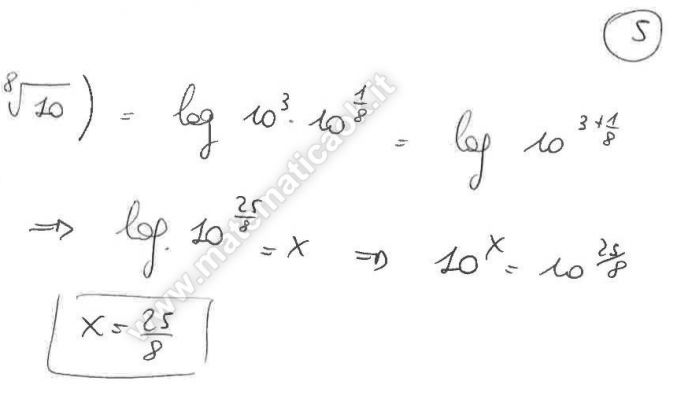 5
⁸√10) = log 10³ · 10^(1/8) = log 10^(3+1/8)
⇒ log. 10^(25/8) = x ⇒ 10^x = 10^(25/8)
x = 25/8
www.matematicaok.it